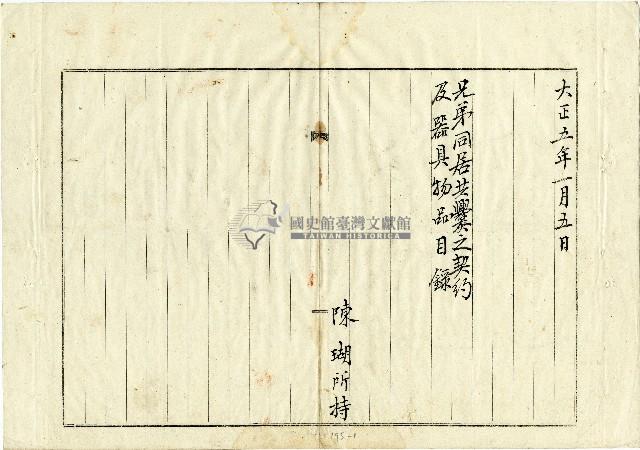 大正五年一月五日
兄弟同居共爨之契約
及器具物品目錄
陳瑚所持
國史館臺灣文獻館
TAIWAN HISTORICA
195-1